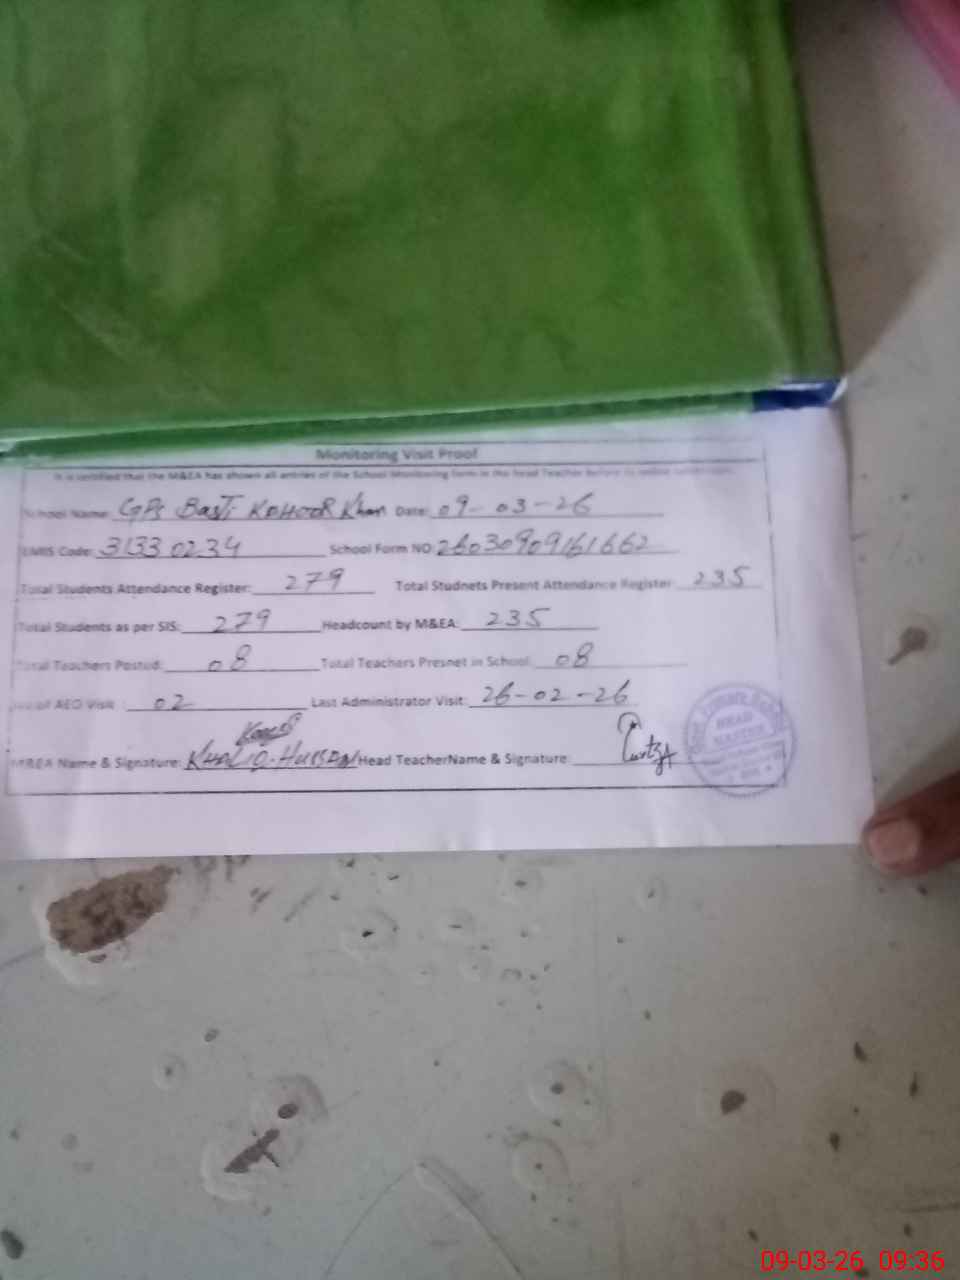 Monitoring Visit Proof
It is certified that the M&EA has shown all entries of the School Monitoring form to the head Teacher before its online submission.
School Name: GPS Basti KOHOOR Khan Date: 09-03-26
EMIS Code: 31330234 School Form NO: 26030909161662
Total Students Attendance Register: 279 Total Studnets Present Attendance Register: 235
Total Students as per SIS: 279 Headcount by M&EA: 235
Total Teachers Posted: 08 Total Teachers Presnet in School: 08
No of AEO Visit : 02 Last Administrator Visit: 26-02-26
M&EA Name & Signature: KHALIQ-HUSSAIN Head TeacherName & Signature:
HEAD
MASTER
09-03-26 09:36